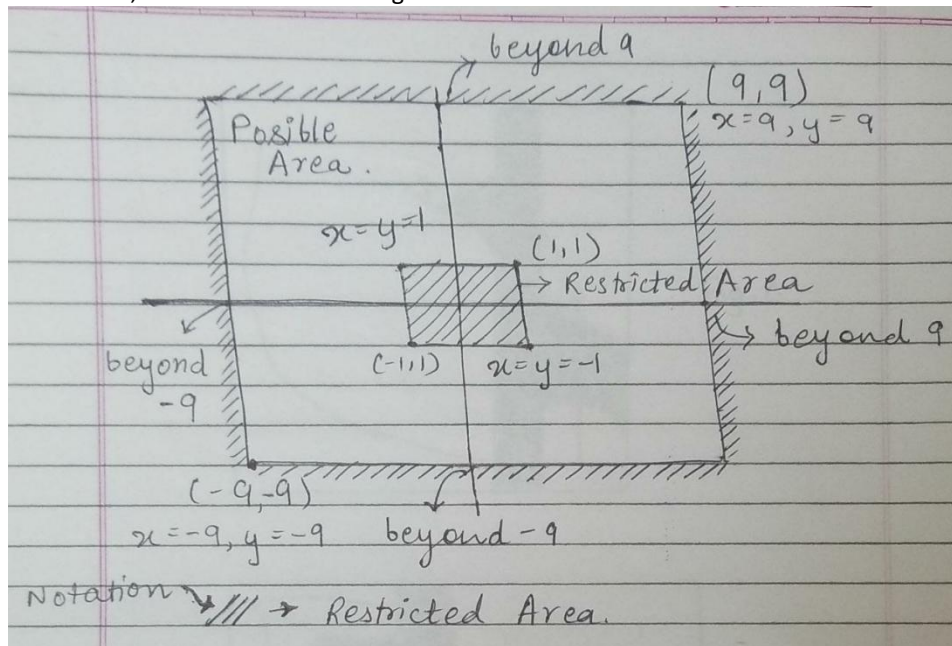 beyond 9
(9,9)
x=9, y=9
Posible
Area.
x=y=1
(1,1)
Restricted Area
beyond 9
beyond
-9
(-1,1)
x=y=-1
(-9,-9)
x=-9, y=-9
beyond -9
Notation
/// → Restricted Area.